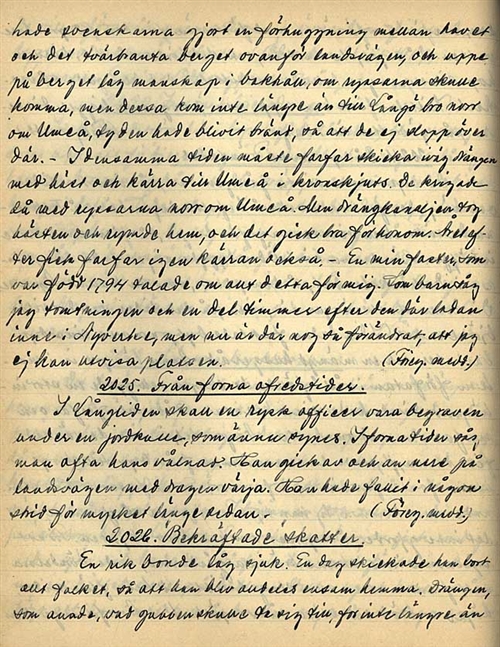 hade svenskarna gjort en förhuggning mellan havet
och det tvärbranta berget ovanför landsvägen, och uppe
på berget låg manskap i bakhåll, om ryssarna skulle
komma, men dessa kom inte längre än till Långö bro norr
om Umeå, ty den hade blivit bränd, så att de ej slapp över
där. - I densamma tiden måste farfar skicka iväg drängen
med häst och kärra till Umeå i kronskjuts. De krigade
då med ryssarna norr om Umeå. Men drängkanaljen tog
hästen och rymde hem, och det gick bra för honom. Året ef-
ter fick farfar igen kärran också. - En min faster, som
var född 1794 talade om allt detta för mig. Som barn såg
jag tomtningen och en del timmer efter den där ladan
inne i Nyverke, men nu är där nog så förändrat, att jag
ej kan utvisa platsen. (Föreg. medd.)
2025. Från forna ofredstider.
I Långliden skall en rysk officer vara begraven
under en jordkulle, som ännu synes. I forna tider såg
man ofta hans vålnad. Han gick av och an nere på
landsvägen med dragen värja. Han hade fallit i någon
strid för mycket länge sedan. (Föreg. medd.)
2026. Bekräftade skatter.
En rik bonde låg sjuk. En dag skickade han bort
allt folket, så att han blev alldeles ensam hemma. Drängen,
som anade, vad gubben skulle te sig till, för inte längre än